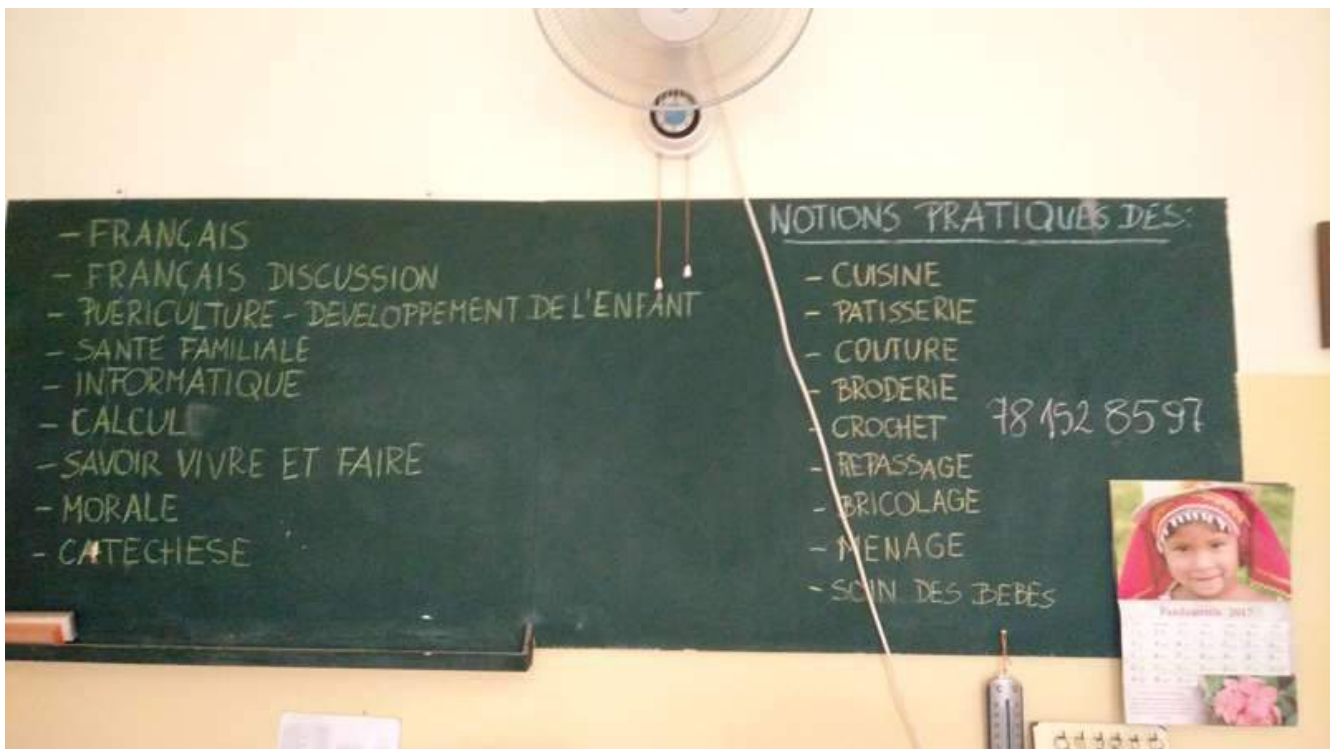 - FRANÇAIS
- FRANÇAIS DISCUSSION
- PUERICULTURE - DEVELOPPEMENT DE L'ENFANT
- SANTE FAMILIALE
- INFORMATIQUE
- CALCUL
- SAVOIR VIVRE ET FAIRE
- MORALE
- CATECHESE
NOTIONS PRATIQUES DES:
- CUISINE
- PATISSERIE
- COUTURE
- BRODERIE
- CROCHET
78 152 85 97
- REPASSAGE
- BRICOLAGE
- MENAGE
- SOIN DES BEBES
2017